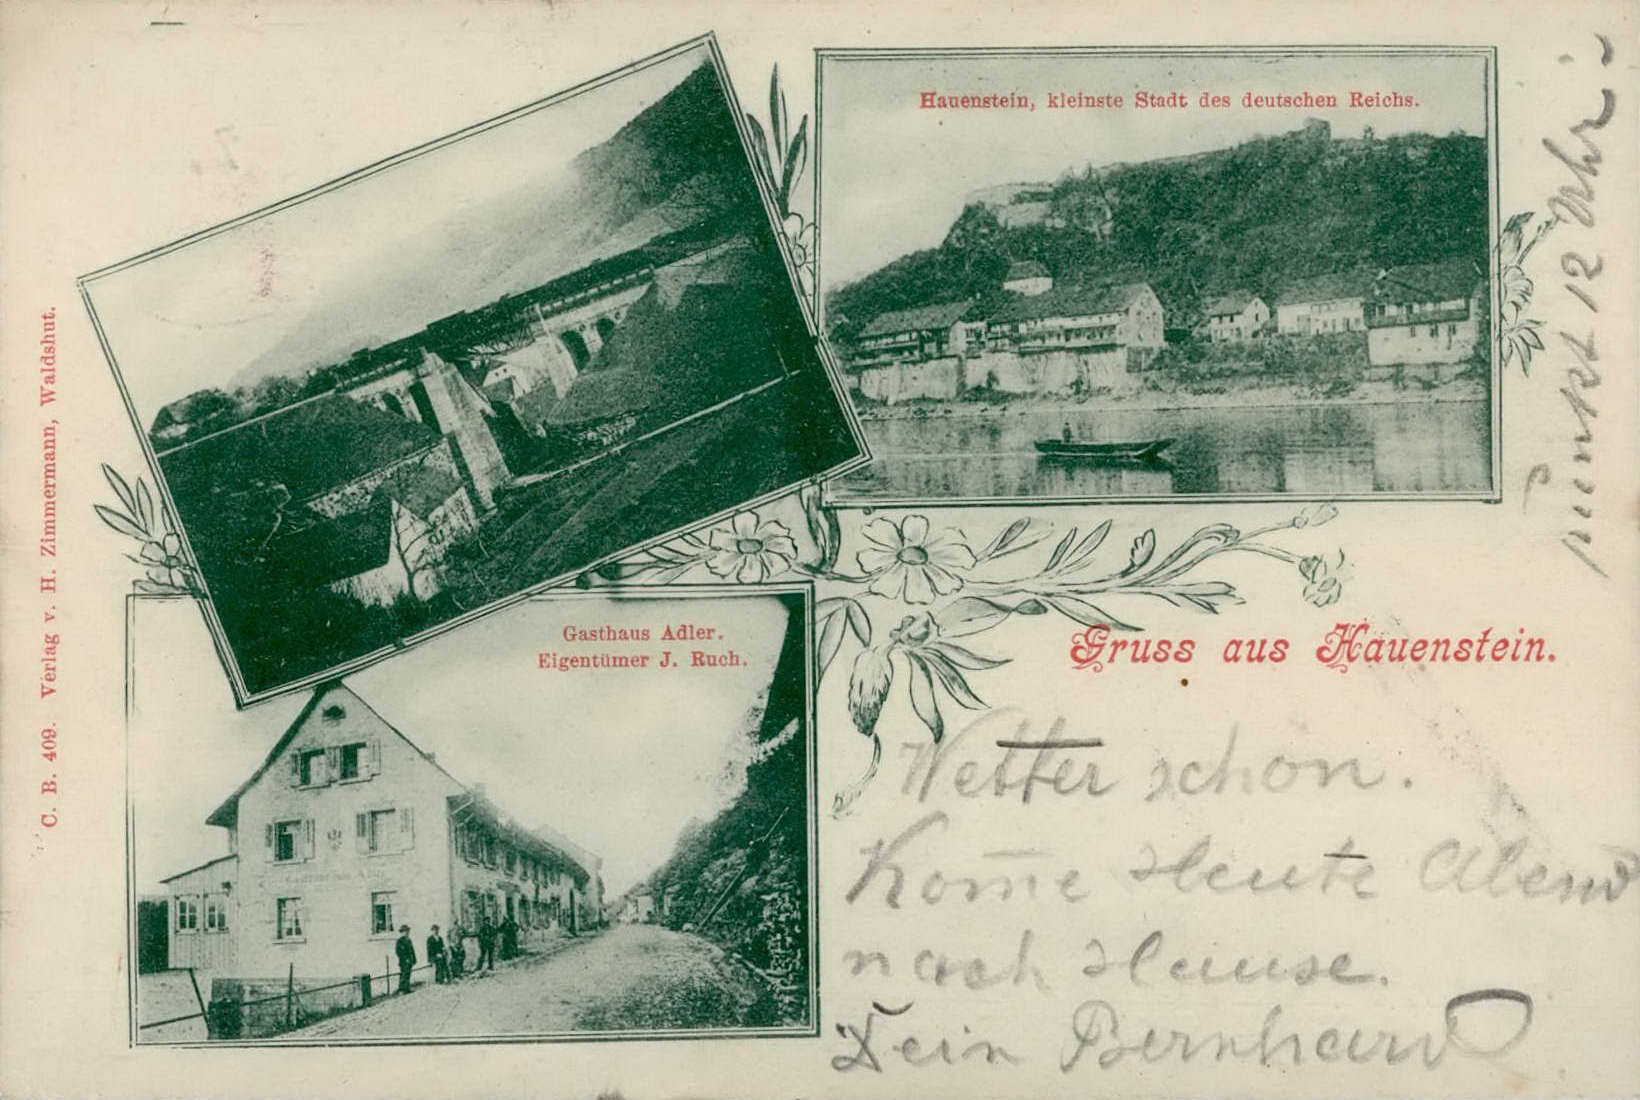 Hauenstein, kleinste Stadt des deutschen Reichs.
Gasthaus Adler.
Eigentümer J. Ruch.
Gruss aus Hauenstein.
C. B. 409. Verlag v. H. Zimmermann, Waldshut.
Wetter schon.
Kom̄e Heute Abend
nach Hause.
Dein Bernhard
pünkt 12 Uhr.